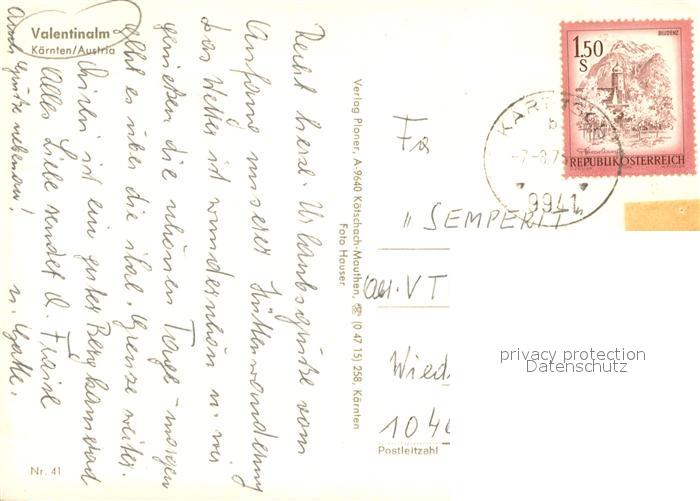 Valentinalm
Kärnten/Austria
Recht herzl. Urlaubsgrüße vom
Anfang unserer Hüttenwanderung
das Wetter ist wunderschön u. wir
genießen die schönen Tage - morgen
geht es über die ital. Grenze weiter.
ist ein guter Bergkamerad
Alles Liebe sendet
u. Gatte.
auch Grüße nebenan!
Nr. 41
Verlag Planer, A-9640 Kötschach-Mauthen, ☎ (0 47 15) 258, Kärnten
Foto Hauser
1.50
S
BLUDENZ
REPUBLIK ÖSTERREICH
9941
Fa
"SEMPERIT"
VT
Wied
104
Postleitzahl
privacy protection
Datenschutz